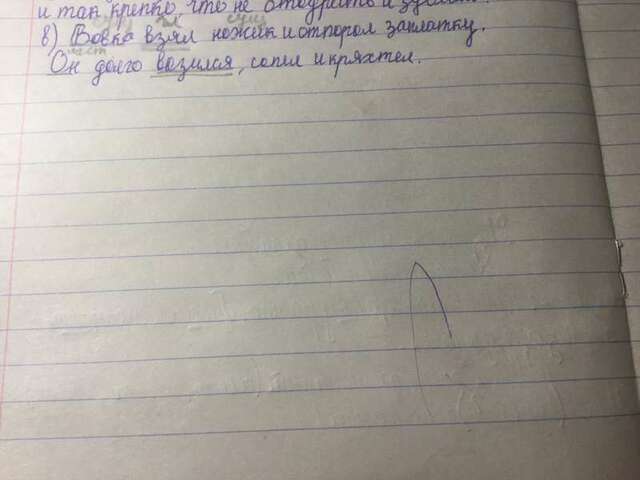 и так крепко, что не отодрать и зубами.
сущ гл сущ
8) Вовка взял ножик и отпорол заплатку.
мест
Он долго возился, сопел и кряхтел.